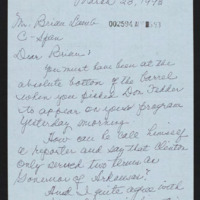 March 23, 1998
Mr. Brian Lamb
C-Span
Dear Brian:
You must have been at the
absolute bottom of the barrel
when you picked Don Fedder
to appear on your program
yesterday morning.
How can he call himself
a reporter and say that Clinton
only served two terms as
Governor of Arkansas?
And I quite agree with